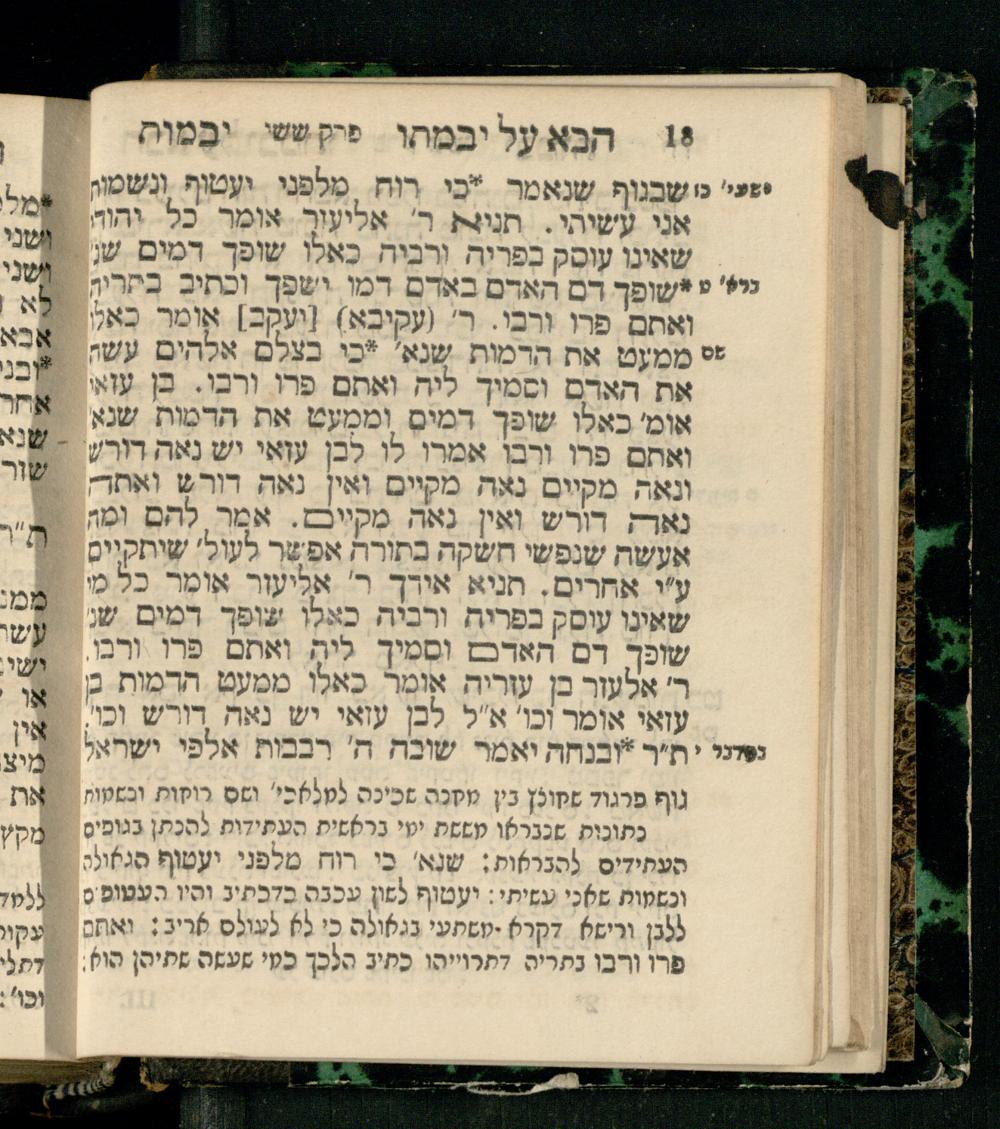 18 הבא על יבמתו פרק ששי יבמות
ישעי' נז שבגוף שנאמר *כי רוח מלפני יעטוף ונשמות
אני עשיתי. תניא ר' אליעזר אומר כל יהודי
שאינו עוסק בפריה ורביה כאלו שופך דמים שנ'
ברא' ט *שופך דם האדם באדם דמו ישפך וכתיב בתריה
ואתם פרו ורבו. ר' (עקיבא) [יעקב] אומר כאלו
שם ממעט את הדמות שנא' *כי בצלם אלהים עשה
את האדם וסמיך ליה ואתם פרו ורבו. בן עזאי
אומ' כאלו שופך דמים וממעט את הדמות שנא'
ואתם פרו ורבו אמרו לו לבן עזאי יש נאה דורש
ונאה מקיים נאה מקיים ואין נאה דורש ואתה
נאה דורש ואין נאה מקיים. אמר להם ומה
אעשה שנפשי חשקה בתורה אפשר לעול' שיתקיים
ע"י אחרים. תניא אידך ר' אליעזר אומר כל מי
שאינו עוסק בפריה ורביה כאלו שופך דמים שנ'
שופך דם האדם וסמיך ליה ואתם פרו ורבו.
ר' אלעזר בן עזריה אומר כאלו ממעט הדמות בן
עזאי אומר וכו' א"ל לבן עזאי יש נאה דורש וכו'.
במדבר י ת"ר *ובנחה יאמר שובה ה' רבבות אלפי ישראל
גוף פרגוד שחוצץ בין מחנה שכינה למלאכי' ושם רוחות ונשמות
נתונות שנבראו מששת ימי בראשית העתידות להנתן בגופים
העתידים להבראות: שנא' כי רוח מלפני יעטוף הגאולה
ונשמות שאני עשיתי: יעטוף לשון עכבה כדכתיב והיו העטופים
ללבן ורישא דקרא משתעי בגאולה כי לא לעולם אריב: ואתם
פרו ורבו בתריה דתרוייהו כתיב הלכך כמי שעשה שתיהן הוא:
III. 2*
*מלפ
ושני
ושני
לא
אבא
*ובני
אחר
שנא
שזר
ת"ר
ממנ
עשר
ישי
או
אין
מיצו
את
מקצ
ללמד
עקור
דתלי
וכו':